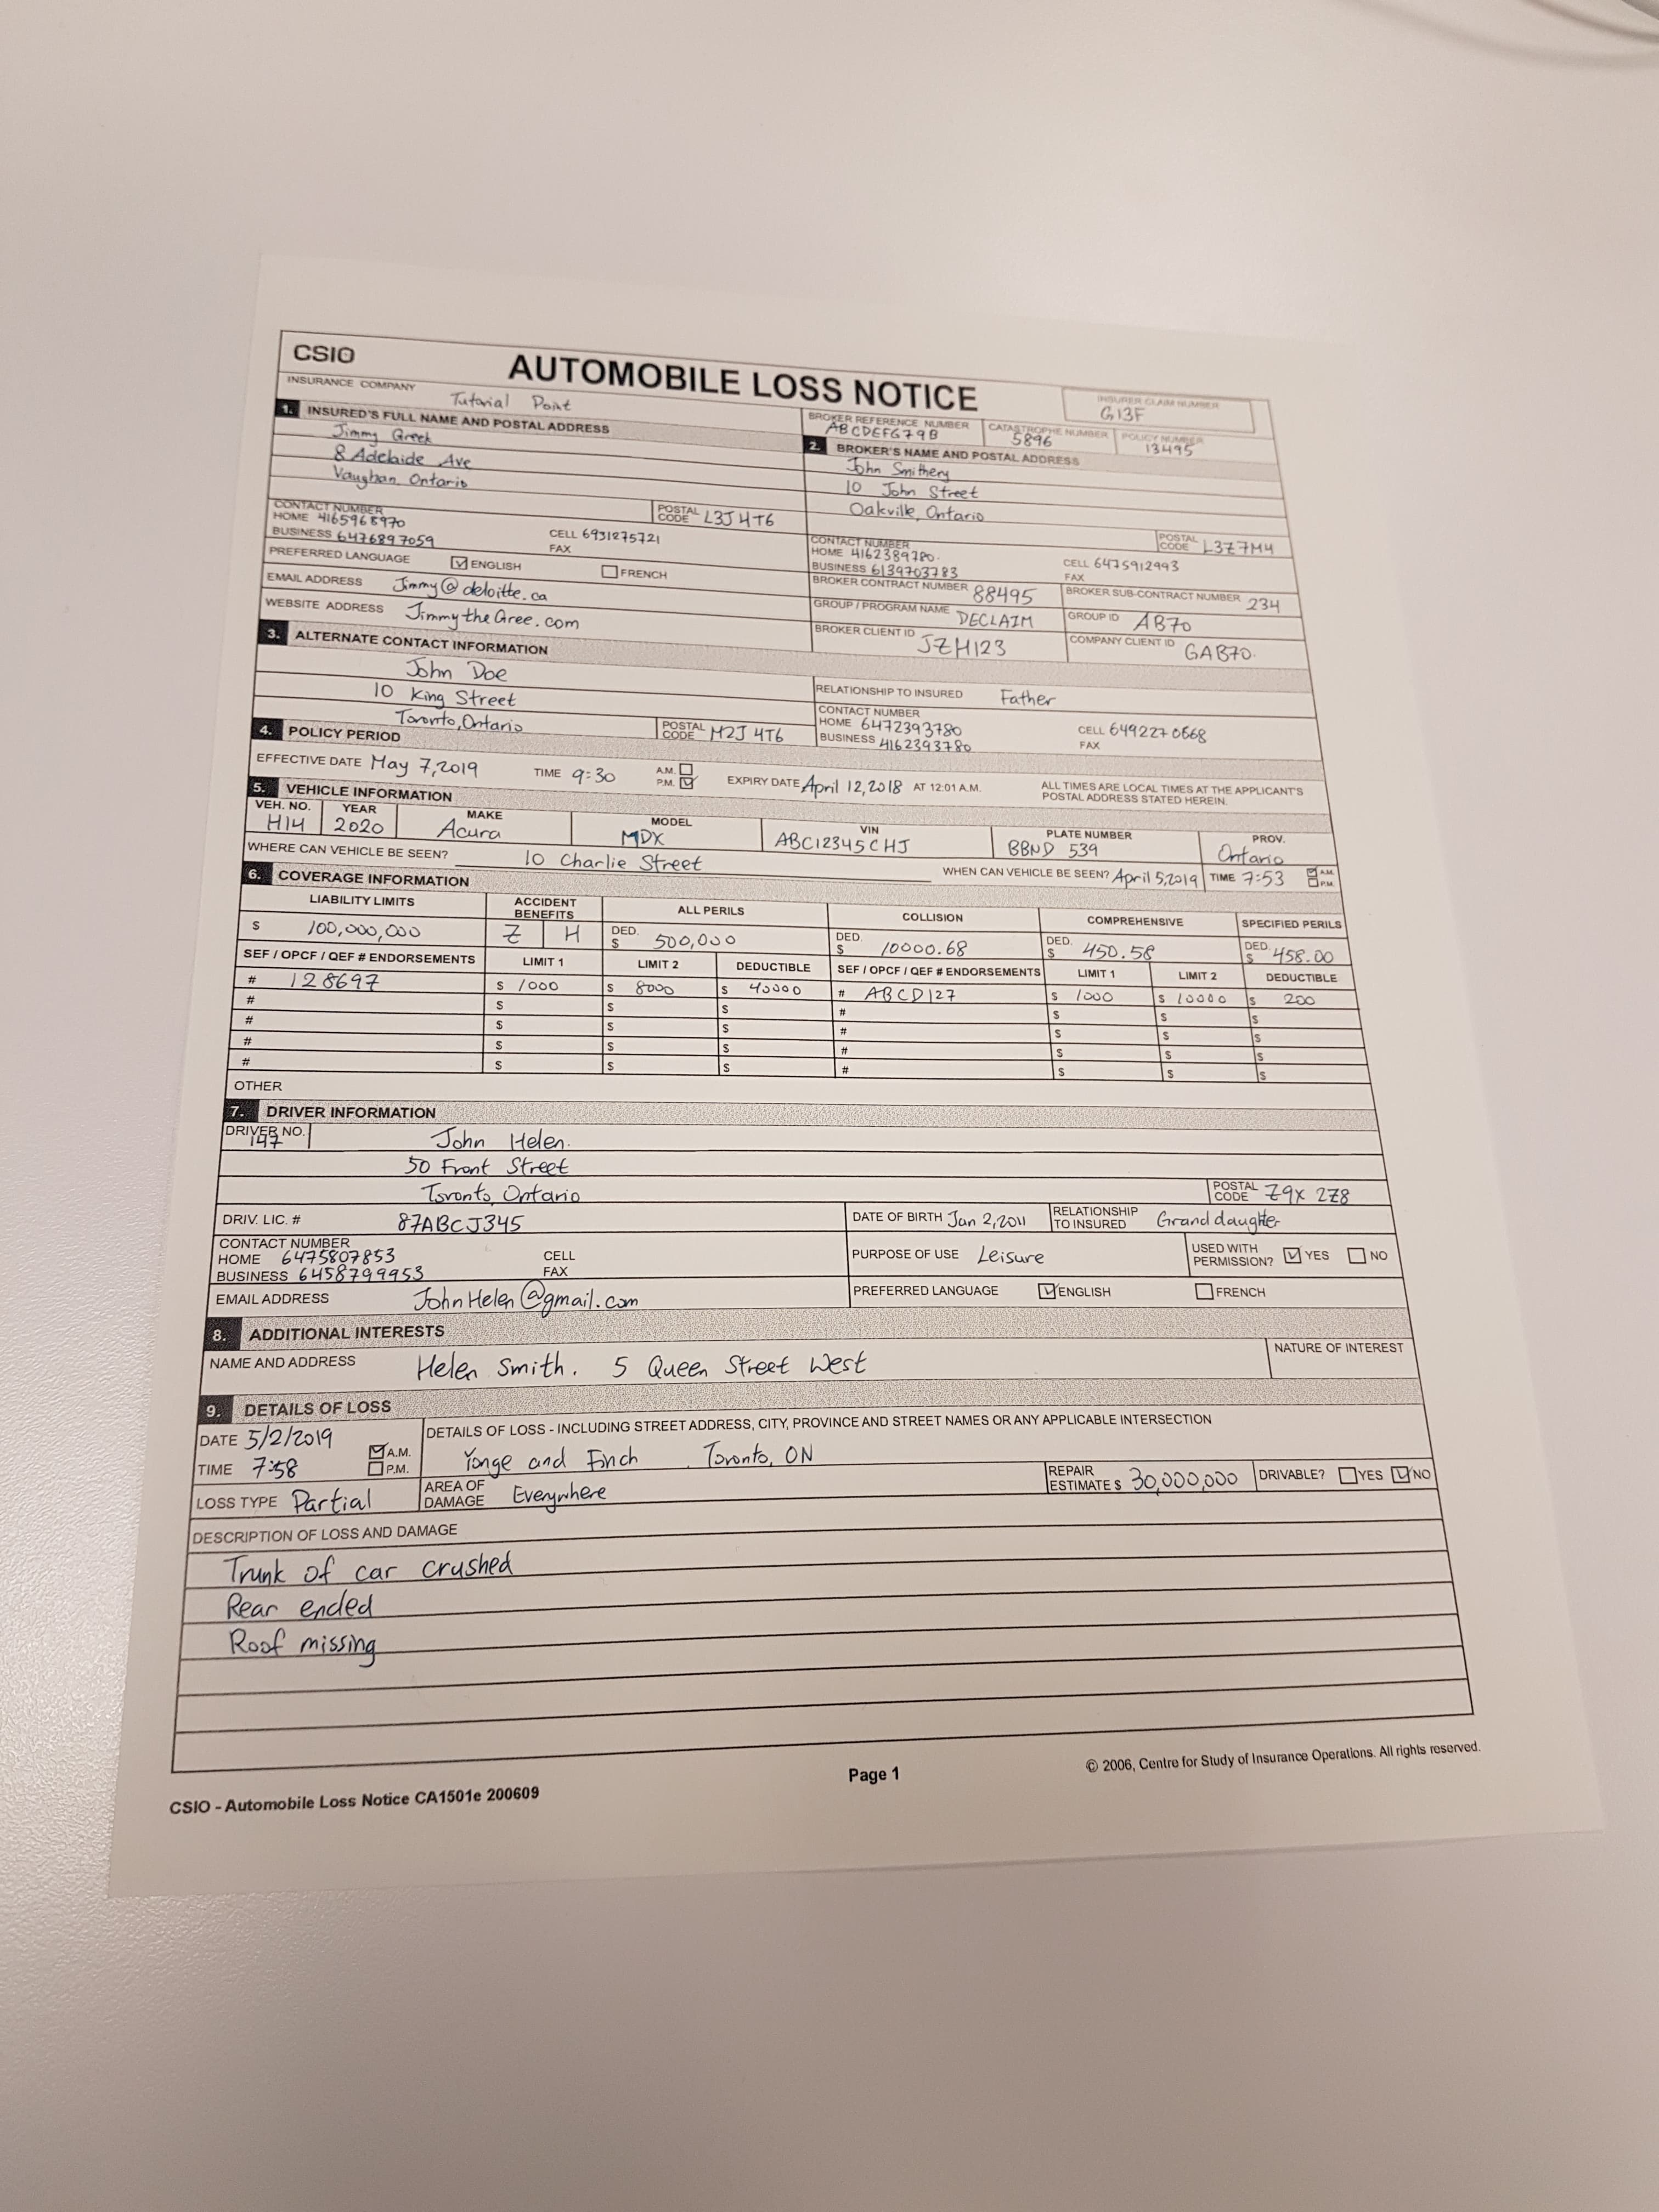 CSIO
AUTOMOBILE LOSS NOTICE
INSURER CLAIM NUMBER
G13F
INSURANCE COMPANY Tutorial Point
BROKER REFERENCE NUMBER ABCDEFG79B
CATASTROPHE NUMBER 5896
POLICY NUMBER 13495
1. INSURED'S FULL NAME AND POSTAL ADDRESS
Jimmy Greek
8 Adelaide Ave
Vaughan, Ontario
CONTACT NUMBER
POSTAL CODE L3J 4T6
HOME 4165968970
BUSINESS 6476897059
CELL 6931275721
FAX
PREFERRED LANGUAGE ENGLISH FRENCH
EMAIL ADDRESS Jimmy@deloitte.ca
WEBSITE ADDRESS JimmytheGree.com
2. BROKER'S NAME AND POSTAL ADDRESS
John Smithery
10 John Street
Oakville, Ontario
CONTACT NUMBER
POSTAL CODE L3Z7M4
HOME 4162389780.
BUSINESS 6139703783
CELL 6475912993
FAX
BROKER CONTRACT NUMBER 88495
BROKER SUB-CONTRACT NUMBER 234
GROUP / PROGRAM NAME DECLAIM
GROUP ID AB70
BROKER CLIENT ID JZH123
COMPANY CLIENT ID GAB70.
3. ALTERNATE CONTACT INFORMATION
John Doe
10 King Street
Toronto, Ontario
POSTAL CODE M2J 4T6
RELATIONSHIP TO INSURED Father
CONTACT NUMBER
HOME 6472393780
BUSINESS 4162393780
CELL 6492270668
FAX
4. POLICY PERIOD
EFFECTIVE DATE May 7, 2019 TIME 9:30 A.M. P.M. EXPIRY DATE April 12, 2018 AT 12:01 A.M.
ALL TIMES ARE LOCAL TIMES AT THE APPLICANT'S
POSTAL ADDRESS STATED HEREIN.
5. VEHICLE INFORMATION
VEH. NO. YEAR MAKE MODEL VIN PLATE NUMBER PROV.
H14 2020 Acura MDX ABC12345CHJ BBND 539 Ontario
WHERE CAN VEHICLE BE SEEN? 10 Charlie Street WHEN CAN VEHICLE BE SEEN? April 5, 2019 TIME 7:53 A.M. P.M.
6. COVERAGE INFORMATION
LIABILITY LIMITS ACCIDENT BENEFITS ALL PERILS COLLISION COMPREHENSIVE SPECIFIED PERILS
$ 100,000,000 Z H DED. $ 500,000 DED. $ 10000.68 DED. $ 450.58 DED. $ 458.00
SEF / OPCF / QEF # ENDORSEMENTS LIMIT 1 LIMIT 2 DEDUCTIBLE SEF / OPCF / QEF # ENDORSEMENTS LIMIT 1 LIMIT 2 DEDUCTIBLE
# 128697 $ 1000 $ 8000 $ 40000 # ABCD127 $ 1000 $ 10000 $ 200
# $ $ $ # $ $ $
# $ $ $ # $ $ $
# $ $ $ # $ $ $
# $ $ $ # $ $ $
OTHER
7. DRIVER INFORMATION
DRIVER NO. 147
John Helen.
50 Front Street
Toronto, Ontario
POSTAL CODE Z9X 2Z8
DRIV. LIC. # 87ABCJ345
DATE OF BIRTH Jan 2, 2011
RELATIONSHIP TO INSURED Granddaughter
CONTACT NUMBER
HOME 6475807853
BUSINESS 6458799953
CELL
FAX
PURPOSE OF USE Leisure
USED WITH PERMISSION? YES NO
EMAIL ADDRESS JohnHelen@gmail.com
PREFERRED LANGUAGE ENGLISH FRENCH
8. ADDITIONAL INTERESTS
NAME AND ADDRESS Helen Smith. 5 Queen Street West
NATURE OF INTEREST
9. DETAILS OF LOSS
DATE 5/2/2019
TIME 7:58 A.M. P.M.
DETAILS OF LOSS - INCLUDING STREET ADDRESS, CITY, PROVINCE AND STREET NAMES OR ANY APPLICABLE INTERSECTION
Yonge and Finch Toronto, ON
LOSS TYPE Partial
AREA OF DAMAGE Everywhere
REPAIR ESTIMATE $ 30,000,000
DRIVABLE? YES NO
DESCRIPTION OF LOSS AND DAMAGE
Trunk of car crushed
Rear ended
Roof missing
CSIO - Automobile Loss Notice CA1501e 200609
Page 1
© 2006, Centre for Study of Insurance Operations. All rights reserved.